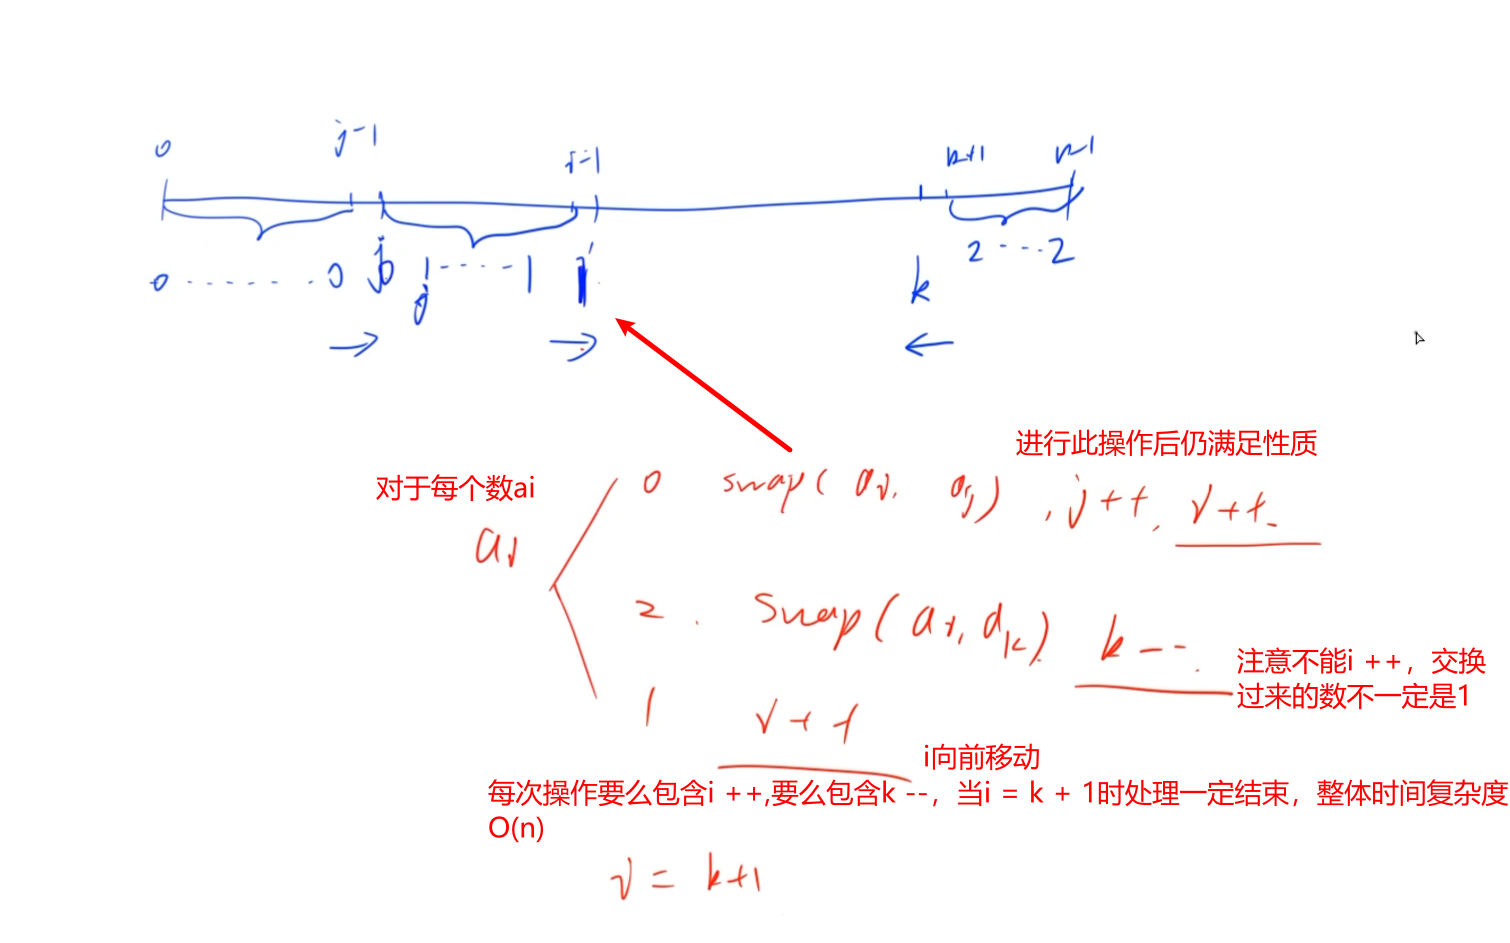 0 j-1 i-1 k+1 n-1
0 ······· 0 j 1 ···· 1 i k 2 ··· 2
j
进行此操作后仍满足性质
对于每个数ai
0 swap( ai, aj) , j++, i++.
ai
2. Swap(ai, ak) k--.
注意不能i ++，交换
过来的数不一定是1
1 i++
i向前移动
每次操作要么包含i ++,要么包含k --，当i = k + 1时处理一定结束，整体时间复杂度
O(n)
i = k+1